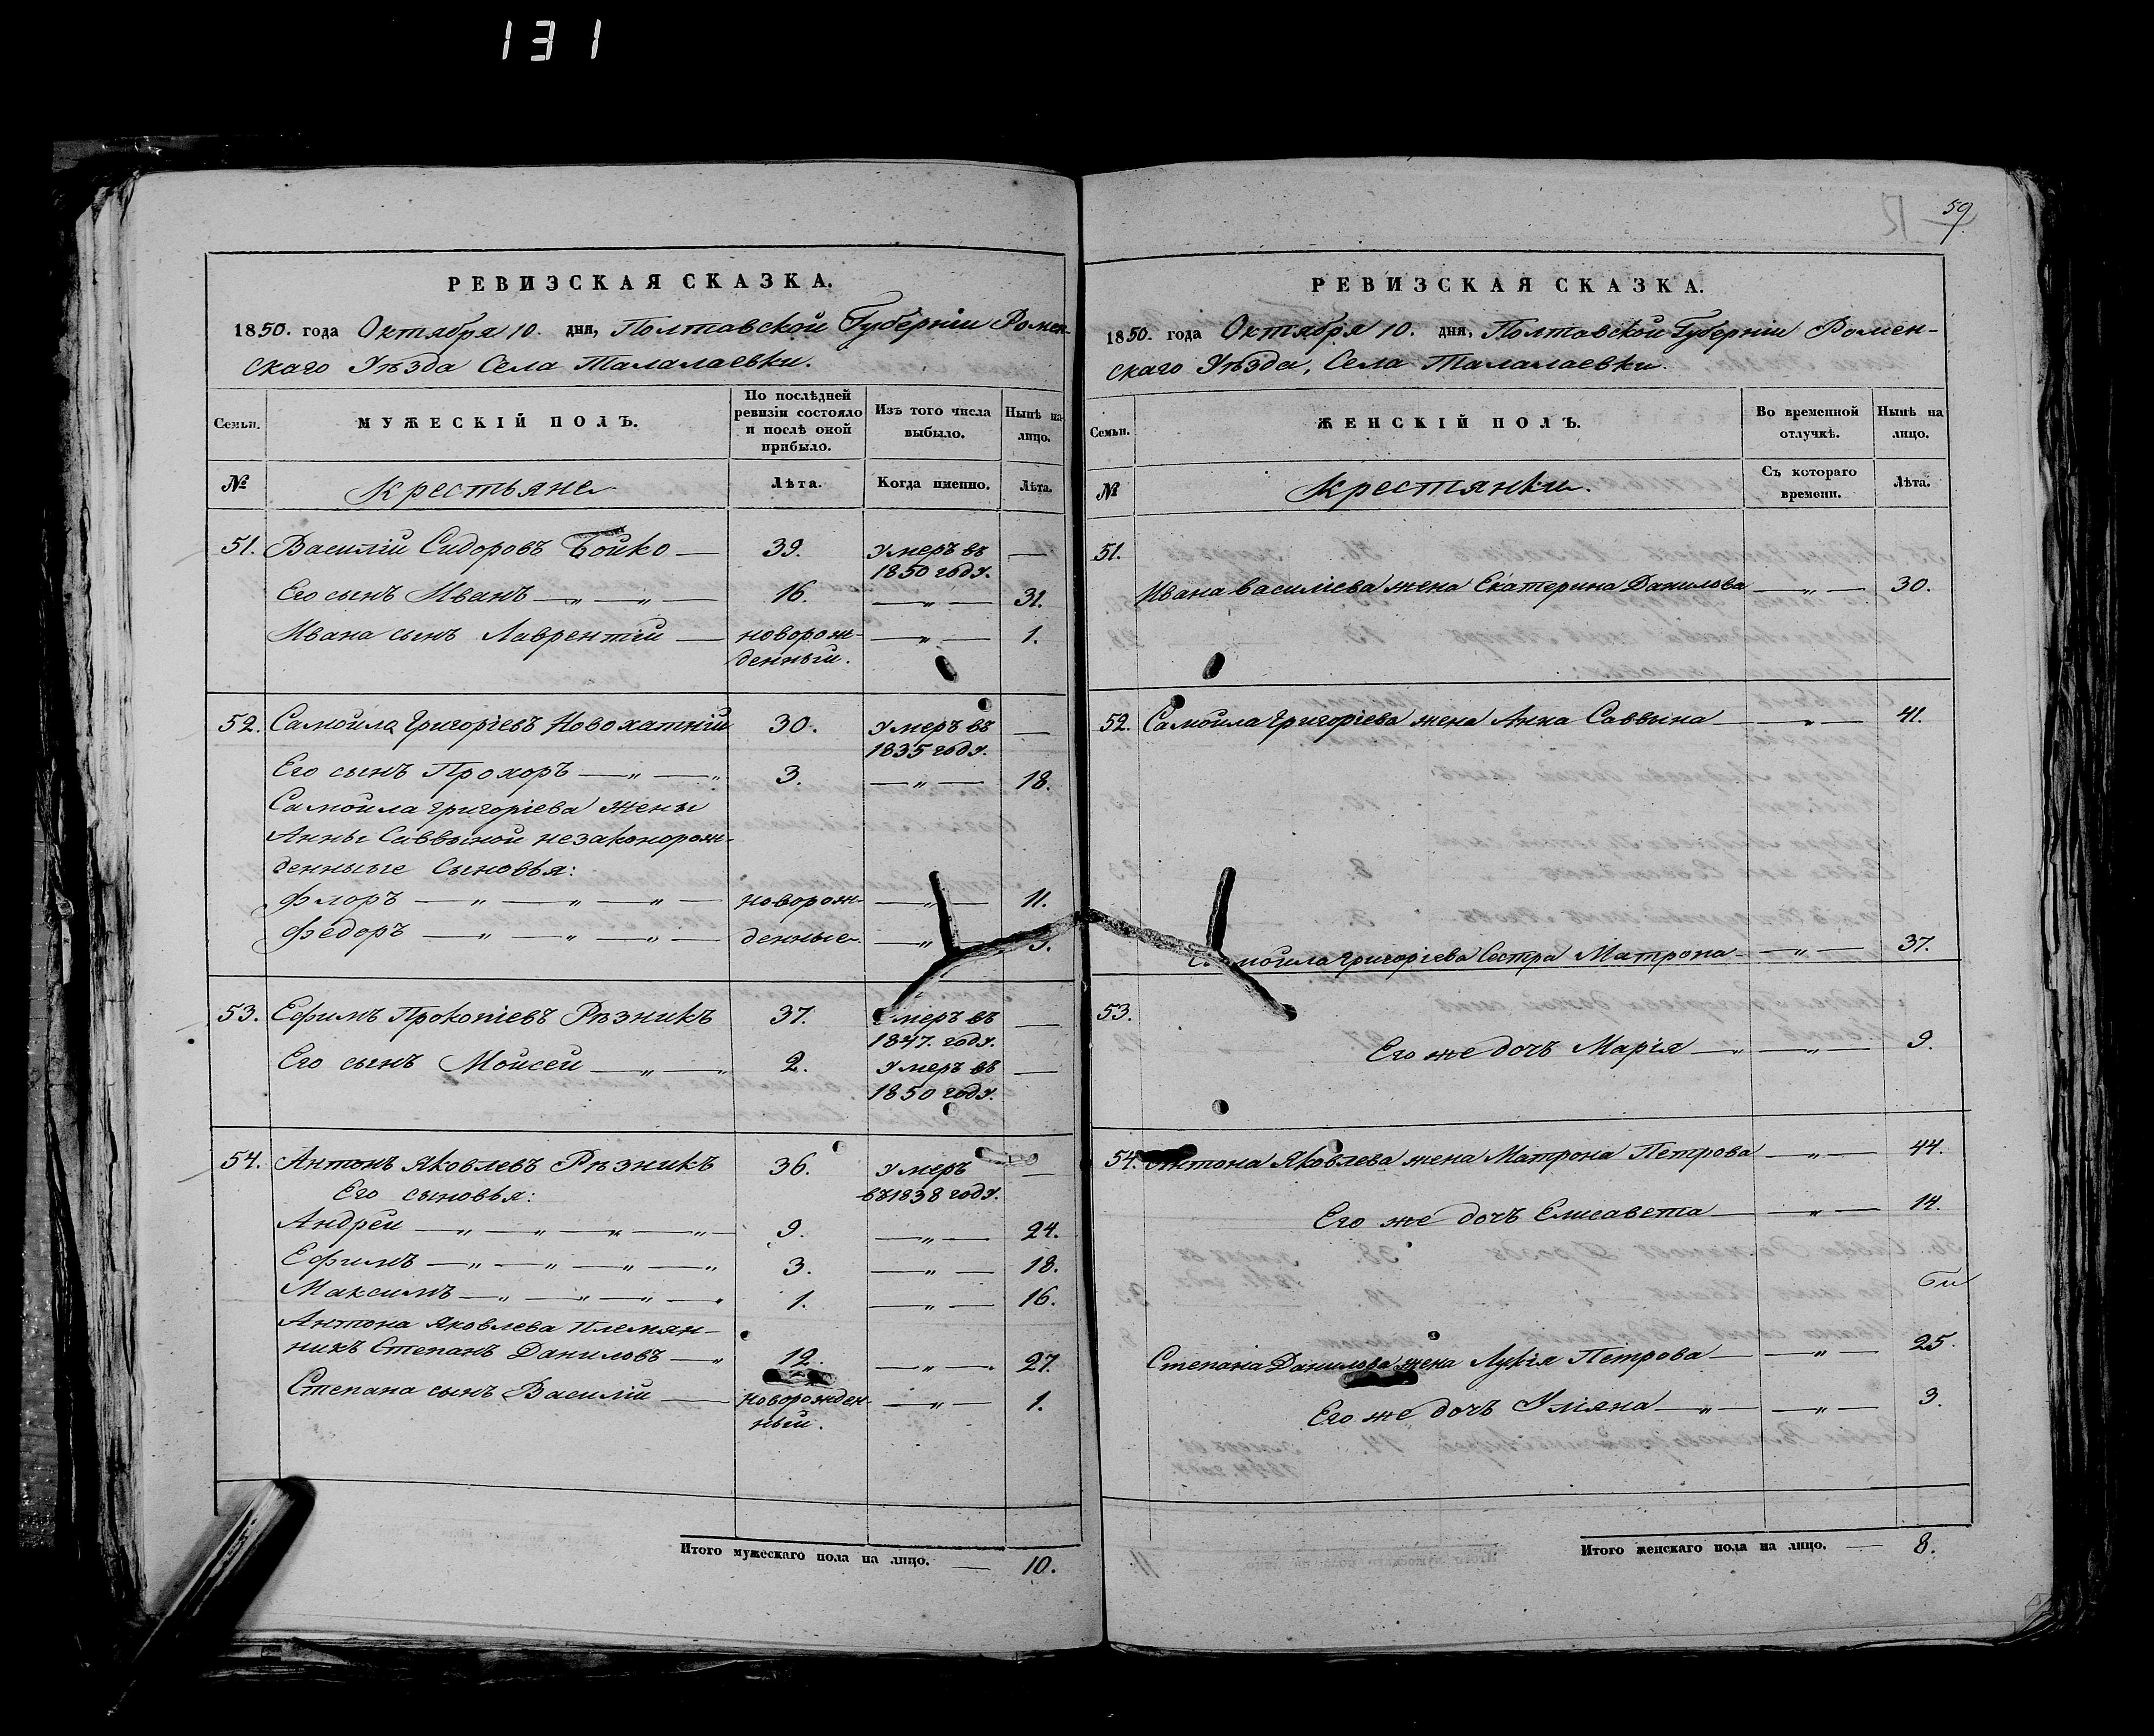 131
РЕВИЗСКАЯ СКАЗКА.
1850. года Октября 10. дня, Полтавской Губерніи Ромен-
скаго Уѣзда Села Талалаевки.
Семьи.
МУЖЕСКІЙ ПОЛЪ.
По послѣдней ревизіи состояло и послѣ оной прибыло.
Изъ того числа выбыло.
Нынѣ на лицо.
№
Крестьяне
Лѣта.
Когда именно.
Лѣта.
51. Василій Сидоровъ Бойко — 39. Умеръ въ 1850 году. —
Его сынъ Иванъ — „ — „ — 16. — „ — 31.
Ивана сынъ Лаврентій — новорожденный. — „ — 1.
52. Самойла Григоріевъ Новохатній 30. Умеръ въ 1835 году. —
Его сынъ Прохоръ — „ — „ 3. — „ — 18.
Самойла Григоріева жены
Анны Саввыной незаконорож-
денные сыновья:
Флоръ — „ — „ — „ — новорож- — „ — 11.
Федоръ — „ — „ — „ — денные. — „ —
53. Ефимъ Прокопіевъ Рѣзникъ 37. Умеръ въ 1847. году. —
Его сынъ Мойсей — „ — „ 2. Умеръ въ 1850 году. —
54. Антонъ Яковлевъ Рѣзникъ 36. Умеръ въ 1838 году. —
Его сыновья:
Андрей — „ — „ — „ — „ — 9. — „ — 24.
Ефимъ — „ — „ — „ — „ 3. — „ — 18.
Максимъ — „ — „ — „ — „ 1. — „ — 16.
Антона Яковлева племян-
никъ Степанъ Даниловъ — „ 12. — „ — 27.
Степана сынъ Василій — новорожденный. — „ — 1.
Итого мужескаго пола на лицо. — 10.
59
РЕВИЗСКАЯ СКАЗКА.
1850. года Октября 10. дня, Полтавской Губерніи Ромен-
скаго Уѣзда, Села Талалаевки.
Семьи.
ЖЕНСКІЙ ПОЛЪ.
Во временной отлучкѣ.
Нынѣ на лицо.
№
Крестянки.
Съ котораго времени.
Лѣта.
51.
Ивана Василіева жена Екатерина Данилова — „ — 30.
52. Самойла Григоріева жена Анна Саввына — „ — 41.
Самойла Григоріева Сестра Матрона — „ — 37.
53.
Его же дочъ Марія — „ — „ — 9.
54. Антона Яковлева жена Матрона Петрова — „ — 44.
Его же дочъ Елисавета — „ — 14.
Степана Данилова жена Лукія Петрова — „ — 25.
Его же дочъ Уліяна — „ — „ — 3.
Итого женскаго пола на лицо. — 8.